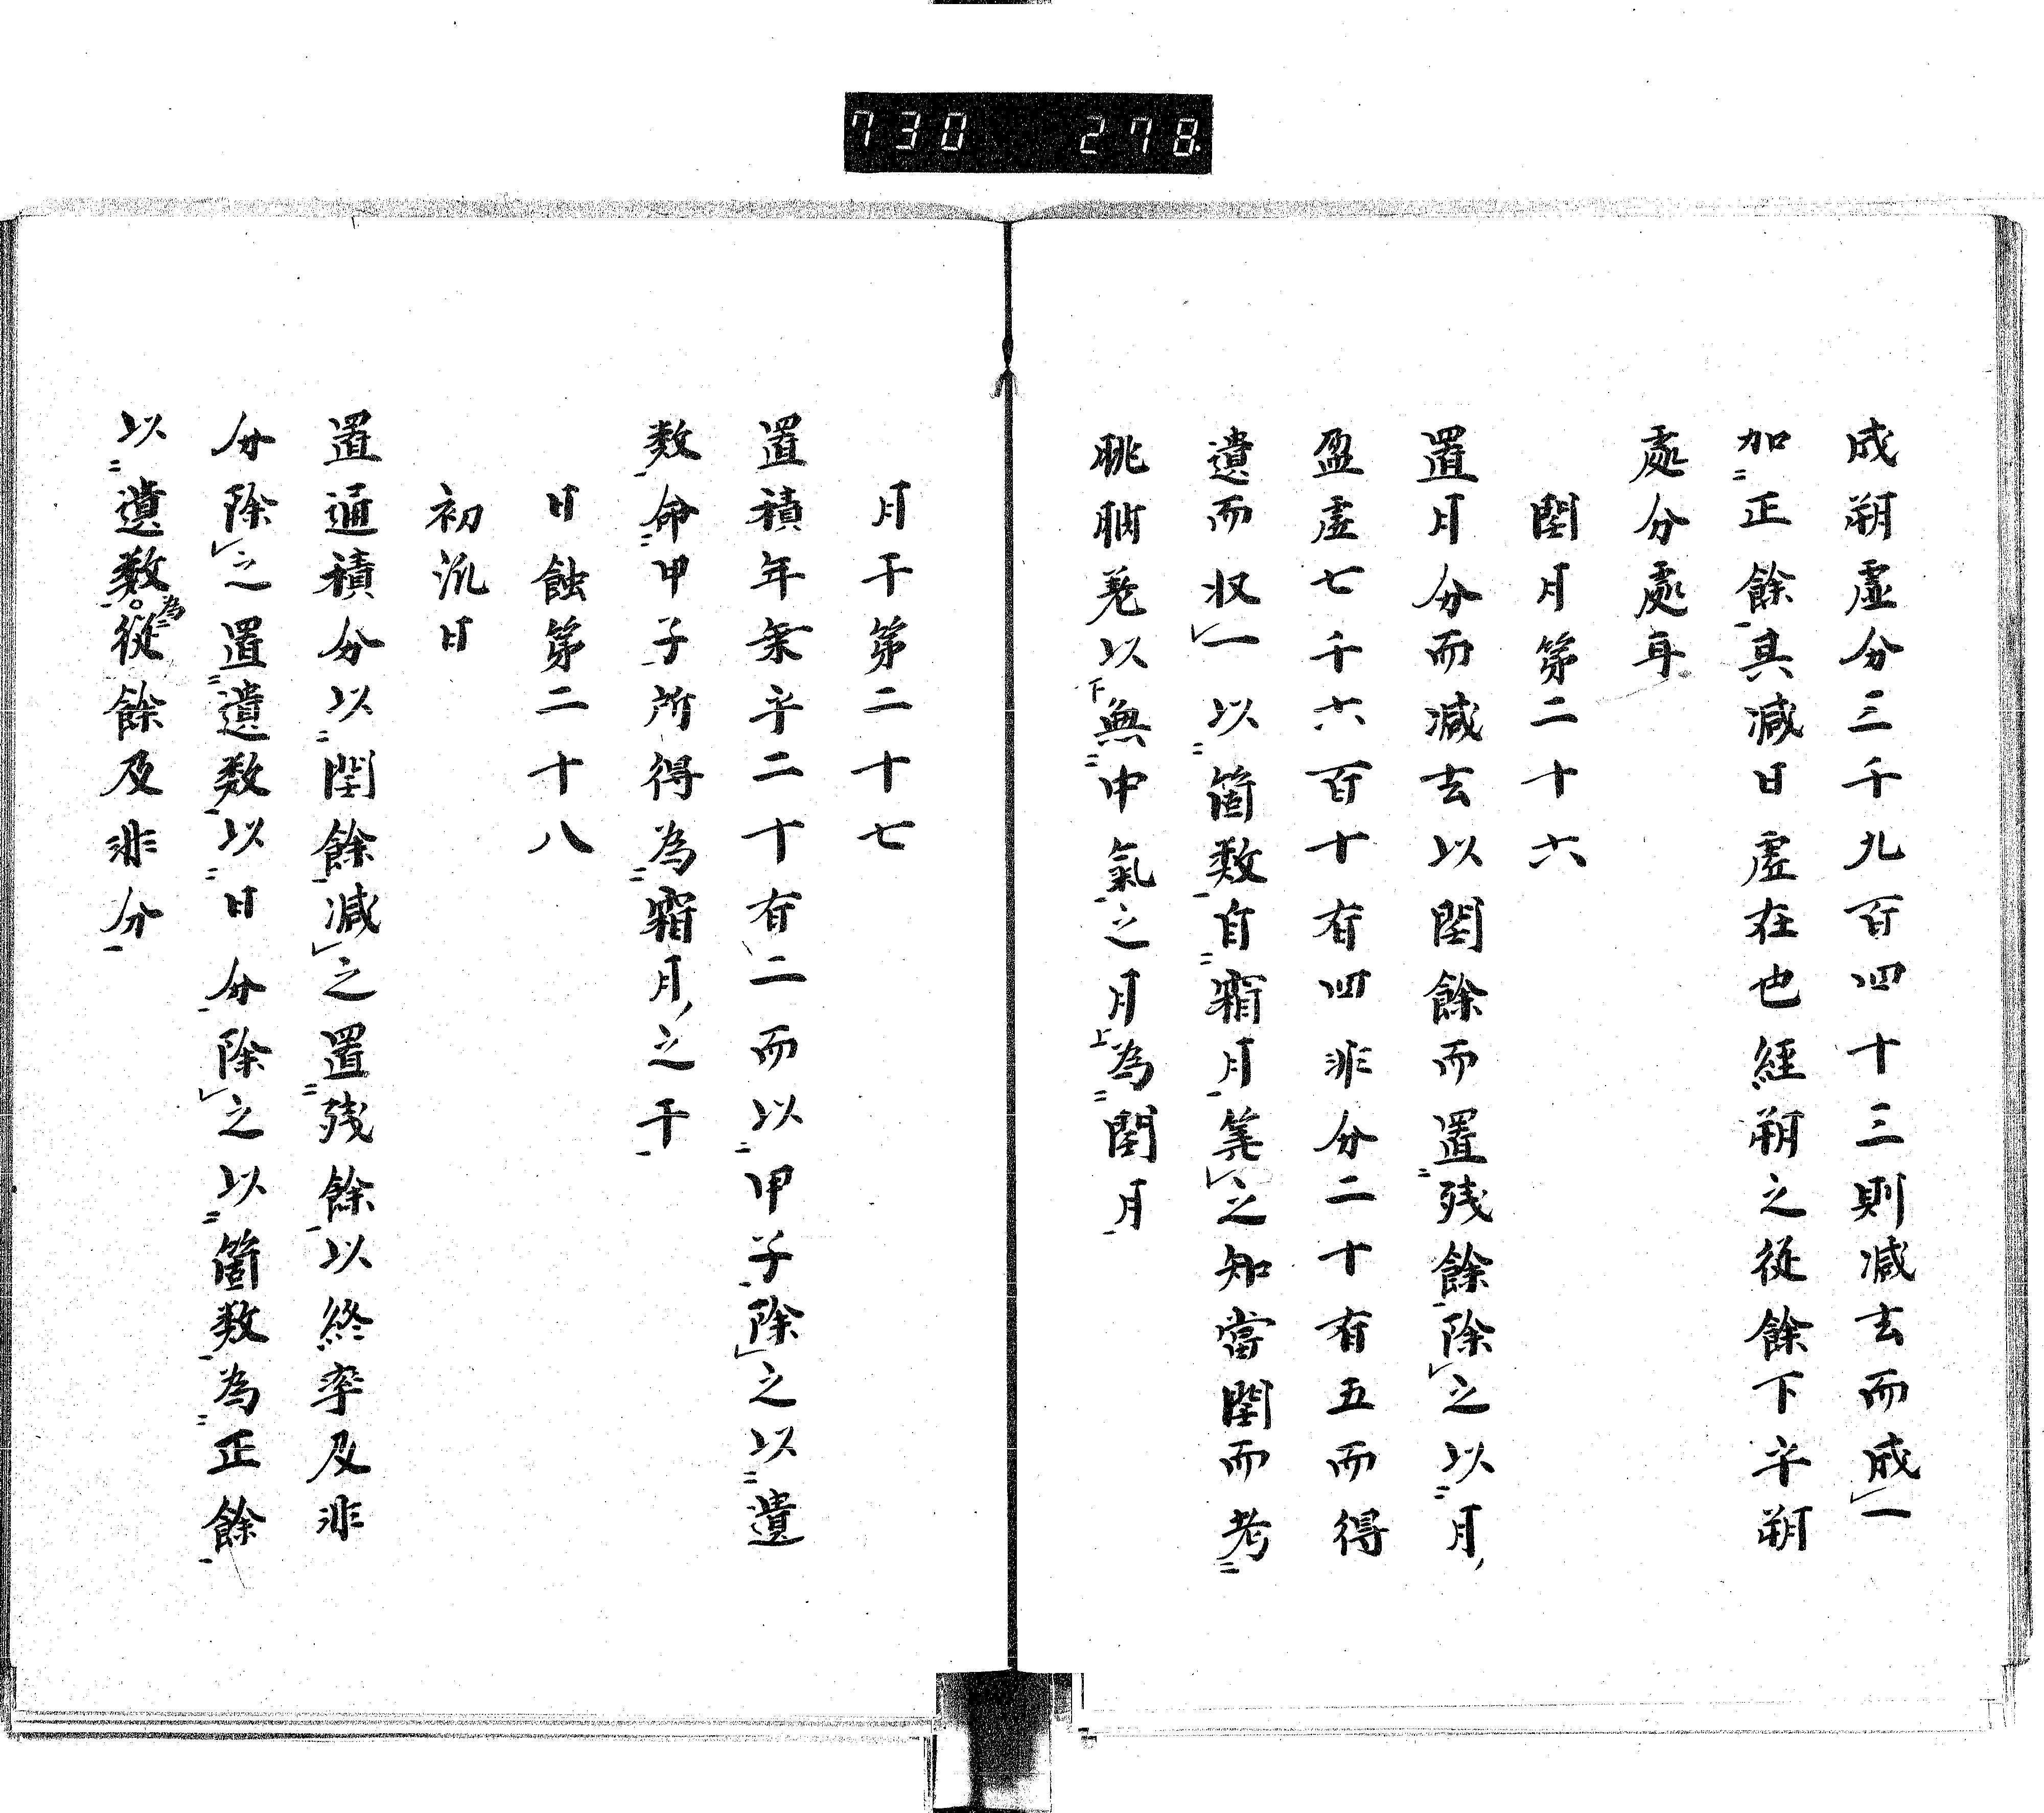 730 278
成朔虚分三千九百四十三則減去而成一
加正餘其減日虚在也経朔之従餘下平朔
處分處年
閏月第二十六
置月分而減去以閏餘而置残餘除之以月
盈虚七千六百十有四非分二十有五而得
遺而収一以箇数自霜月筭之知當閏而考
眺朒差以無中氣之月為閏月
月干第二十七
置積年乗乎二十有二而以甲子除之以遺
数命甲子所得為霜月之干
日蝕第二十八
初泒日
置通積分以閏餘減之置残餘以終率及非
分除之置遺数以日分除之以箇数為正餘
以遺数為従餘及非分